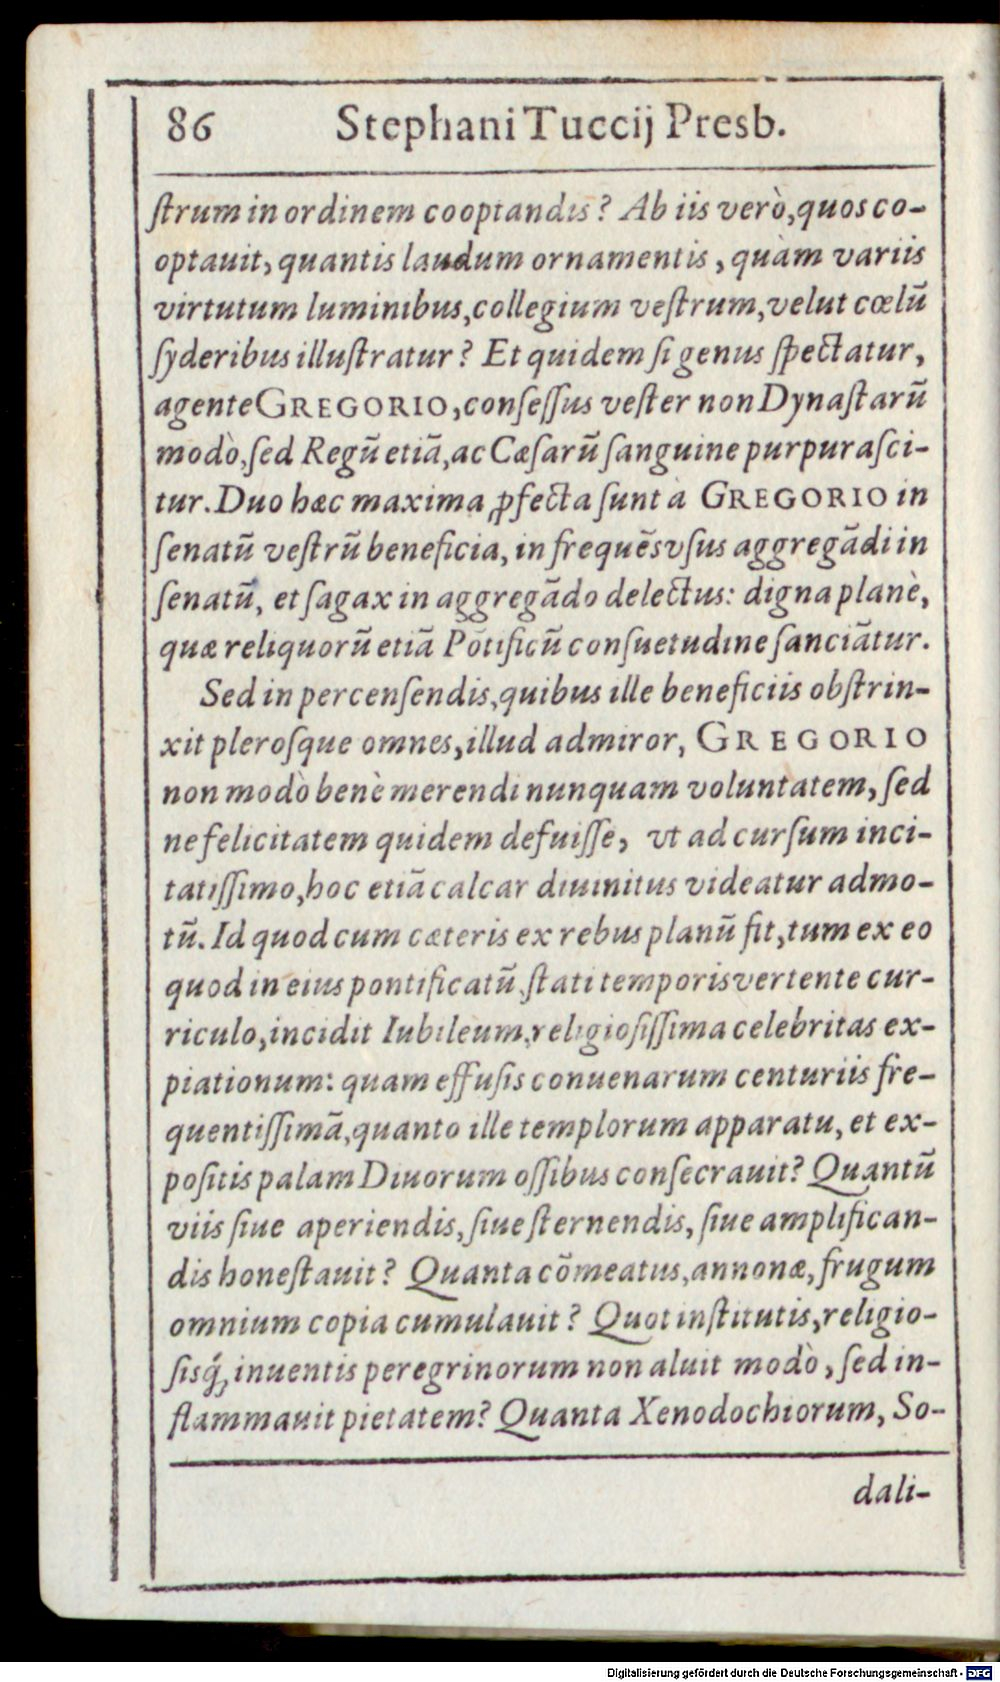 86 Stephani Tuccij Presb.
ſtrum in ordinem cooptandis? Ab iis verò, quos co-
optauit, quantis laudum ornamentis, quàm variis
virtutum luminibus, collegium veſtrum, velut cœlũ
ſyderibus illuſtratur? Et quidem ſi genus ſpectatur,
agente GREGORIO, conſeſſus veſter non Dynaſtarũ
modò, ſed Regũ etiã, ac Cæſarũ ſanguine purpuraſci-
tur. Duo hæc maxima ꝓfecta ſunt à GREGORIO in
ſenatũ veſtrũ beneficia, in frequẽs vſus aggregãdi in
ſenatũ, et ſagax in aggregãdo delectus: digna planè,
quæ reliquorũ etiã Põtificũ conſuetudine ſanciãtur.
Sed in percenſendis, quibus ille beneficiis obſtrin-
xit pleroſque omnes, illud admiror, GREGORIO
non modò benè merendi nunquam voluntatem, ſed
ne felicitatem quidem defuiſſe, vt ad curſum inci-
tatiſſimo, hoc etiã calcar diuinitus videatur admo-
tũ. Id quod cum cæteris ex rebus planũ fit, tum ex eo
quod in eius pontificatũ, ſtati temporis vertente cur-
riculo, incidit Iubileum, religioſiſſima celebritas ex-
piationum: quam effuſis conuenarum centuriis fre-
quentiſſimã, quanto ille templorum apparatu, et ex-
poſitis palam Diuorum oſſibus conſecrauit? Quantũ
viis ſiue aperiendis, ſiue ſternendis, ſiue amplifican-
dis honeſtauit? Quanta cõmeatus, annonæ, frugum
omnium copia cumulauit? Quot inſtitutis, religio-
ſisq́; inuentis peregrinorum non aluit modò, ſed in-
flammauit pietatem? Quanta Xenodochiorum, So-
dali-
Digitalisierung gefördert durch die Deutsche Forschungsgemeinschaft - DFG